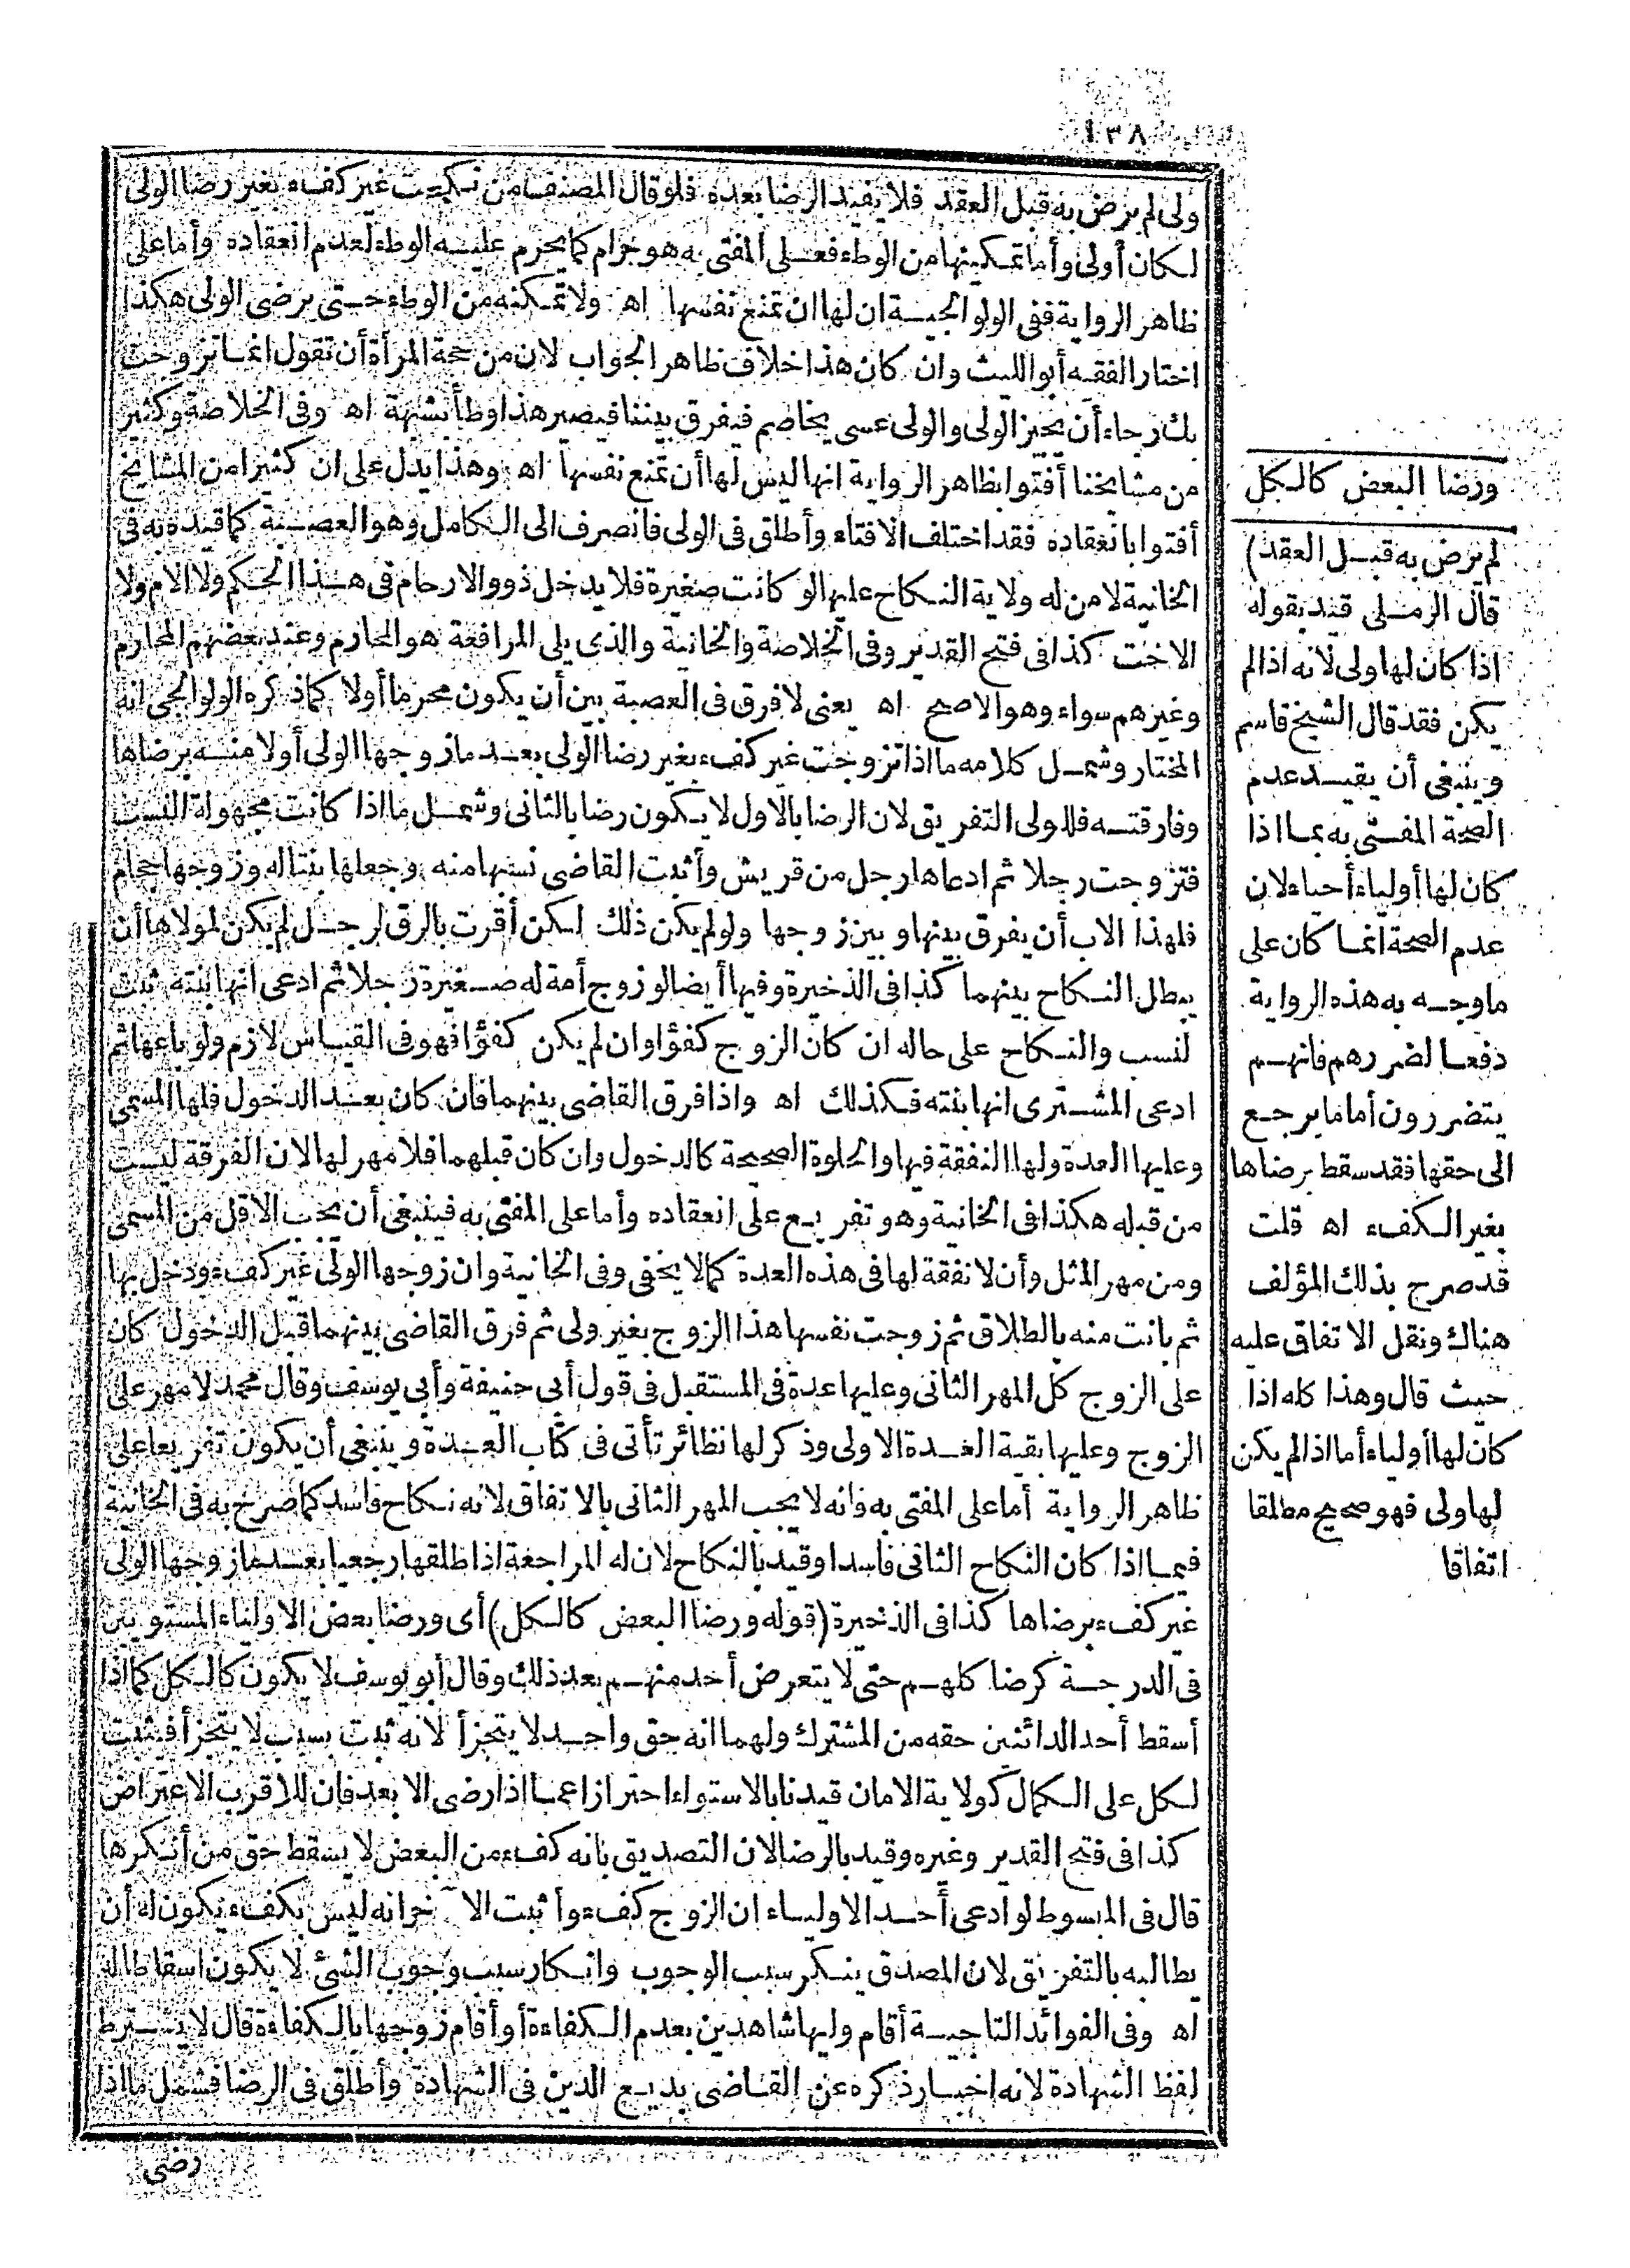 ١٣٨
ولى لم يرض به قبل العقد فلا يفيد الرضا بعده فلو قال المصنف من نكحت غير كفء بغير رضا الولى
لكان أولى وأما تمكينها من الوطء فعلى المفتى به هو حرام كما يحرم عليه الوطء لعدم انعقاده وأما على
ظاهر الرواية ففى الولوالجية ان لها ان تمنع نفسها اه ولا تمكنه من الوطء حتى يرضى الولى هكذا
اختار الفقيه أبو الليث وان كان هذا خلاف ظاهر الجواب لان من حجة المرأة أن تقول انما تزوجت
بك رجاء أن يجيز الولى والولى عسى يخاصم فيفرق بيننا فيصير هذا وطأ بشبهة اه وفى الخلاصة وكثير
من مشايخنا أفتوا بظاهر الرواية انها ليس لها أن تمنع نفسها اه وهذا يدل على ان كثيرا من المشايخ
أفتوا بانعقاده فقد اختلف الافتاء وأطلق فى الولى فانصرف الى الكامل وهو العصبة كما قيده به فى
الخانية لا من له ولاية النكاح عليها لو كانت صغيرة فلا يدخل ذوو الارحام فى هذا الحكم ولا الام ولا
الاخت كذا فى فتح القدير وفى الخلاصة والخانية والذى يلى المرافعة هو المحارم وعند بعضهم المحارم
وغيرهم سواء وهو الاصح اه يعنى لا فرق فى العصبة بين أن يكون محرما أولا كما ذكره الولوالجى انه
المختار وشمل كلامه ما اذا تزوجت غير كفء بغير رضا الولى بعد ما زوجها الولى أولا منه برضاها
وفارقته فللولى التفريق لان الرضا بالاول لا يكون رضا بالثانى وشمل ما اذا كانت مجهولة النسب
فتزوجت رجلا ثم ادعاها رجل من قريش وأثبت القاضى نسبها منه وجعلها بنتا له وزوجها حجام
فلهذا الاب أن يفرق بينها وبين زوجها ولو لم يكن ذلك لكن أقرت بالرق لرجل لم يكن لمولاها أن
يبطل النكاح بينهما كذا فى الذخيرة وفيها أيضا لو زوج أمة له صغيرة رجلا ثم ادعى انها بنته ثبت
لنسب والنكاح على حاله ان كان الزوج كفؤا وان لم يكن كفؤا فهو فى القياس لازم ولو باعها ثم
ادعى المشترى انها بنته فكذلك اه واذا فرق القاضى بينهما فان كان بعد الدخول فلها المسمى
وعليها العدة ولها النفقة فيها والخلوة الصحيحة كالدخول وان كان قبلهما فلا مهر لها لان الفرقة ليست
من قبله هكذا فى الخانية وهو تفريع على انعقاده وأما على المفتى به فينبغى أن يجب الاقل من المسمى
ومن مهر المثل وأن لا نفقة لها فى هذه العدة كما لا يخفى وفى الخانية وان زوجها الولى غير كفء ودخل بها
ثم بانت منه بالطلاق ثم زوجت نفسها هذا الزوج بغير ولى ثم فرق القاضى بينهما قبل الدخول كان
على الزوج كل المهر الثانى وعليها عدة فى المستقبل فى قول أبى حنيفة وأبى يوسف وقال محمد لا مهر على
الزوج وعليها بقية العدة الاولى وذكر لها نظائر تأتى فى كتاب العدة وينبغى أن يكون تفريعا على
ظاهر الرواية أما على المفتى به فانه لا يجب المهر الثانى بالاتفاق لانه نكاح فاسد كما صرح به فى الخانية
فيما اذا كان النكاح الثانى فاسدا وقيد بالنكاح لان له المراجعة اذا طلقها رجعيا بعد ما زوجها الولى
غير كفء برضاها كذا فى الذخيرة (قوله ورضا البعض كالكل) أى ورضا بعض الاولياء المستويين
فى الدرجة كرضا كلهم حتى لا يتعرض أحد منهم بعد ذلك وقال أبو يوسف لا يكون كالكل كما اذا
أسقط أحد الدائنين حقه من المشترك ولهما انه حق واحد لا يتجزأ لانه ثبت بسبب لا يتجزأ فيثبت
لكل على الكمال كولاية الامان قيدنا بالاستواء احترازا عما اذا رضى الابعد فان للاقرب الاعتراض
كذا فى فتح القدير وغيره وقيد بالرضا لان التصديق بانه كفء من البعض لا يسقط حق من أنكرها
قال فى المبسوط لو ادعى أحد الاولياء ان الزوج كفء وأثبت الآخر انه ليس بكفء يكون له أن
يطالبه بالتفريق لان المصدق ينكر سبب الوجوب وانكار سبب وجوب الشئ لا يكون اسقاطا له
اه وفى الفوائد التاجية أقام وليها شاهدين بعدم الكفاءة أو أقام زوجها بالكفاءة قال لا يشترط
لفظ الشهادة لانه اخبار ذكره عن القاضى بديع الدين فى الشهادة وأطلق فى الرضا فشمل ما اذا
رضى
ورضا البعض كالكل
لم يرض به قبل العقد)
قال الرملى قيد بقوله
اذا كان لها ولى لانه اذا لم
يكن فقد قال الشيخ قاسم
وينبغى أن يقيد عدم
الصحة المفتى به بما اذا
كان لها أولياء أحياء لان
عدم الصحة انما كان على
ما وجه به هذه الرواية
دفعا لضررهم فانهم
يتضررون أما ما يرجع
الى حقها فقد سقط برضاها
بغير الكفء اه قلت
قد صرح بذلك المؤلف
هناك ونقل الاتفاق عليه
حيث قال وهذا كله اذا
كان لها أولياء أما اذا لم يكن
لها ولى فهو صحيح مطلقا
اتفاقا